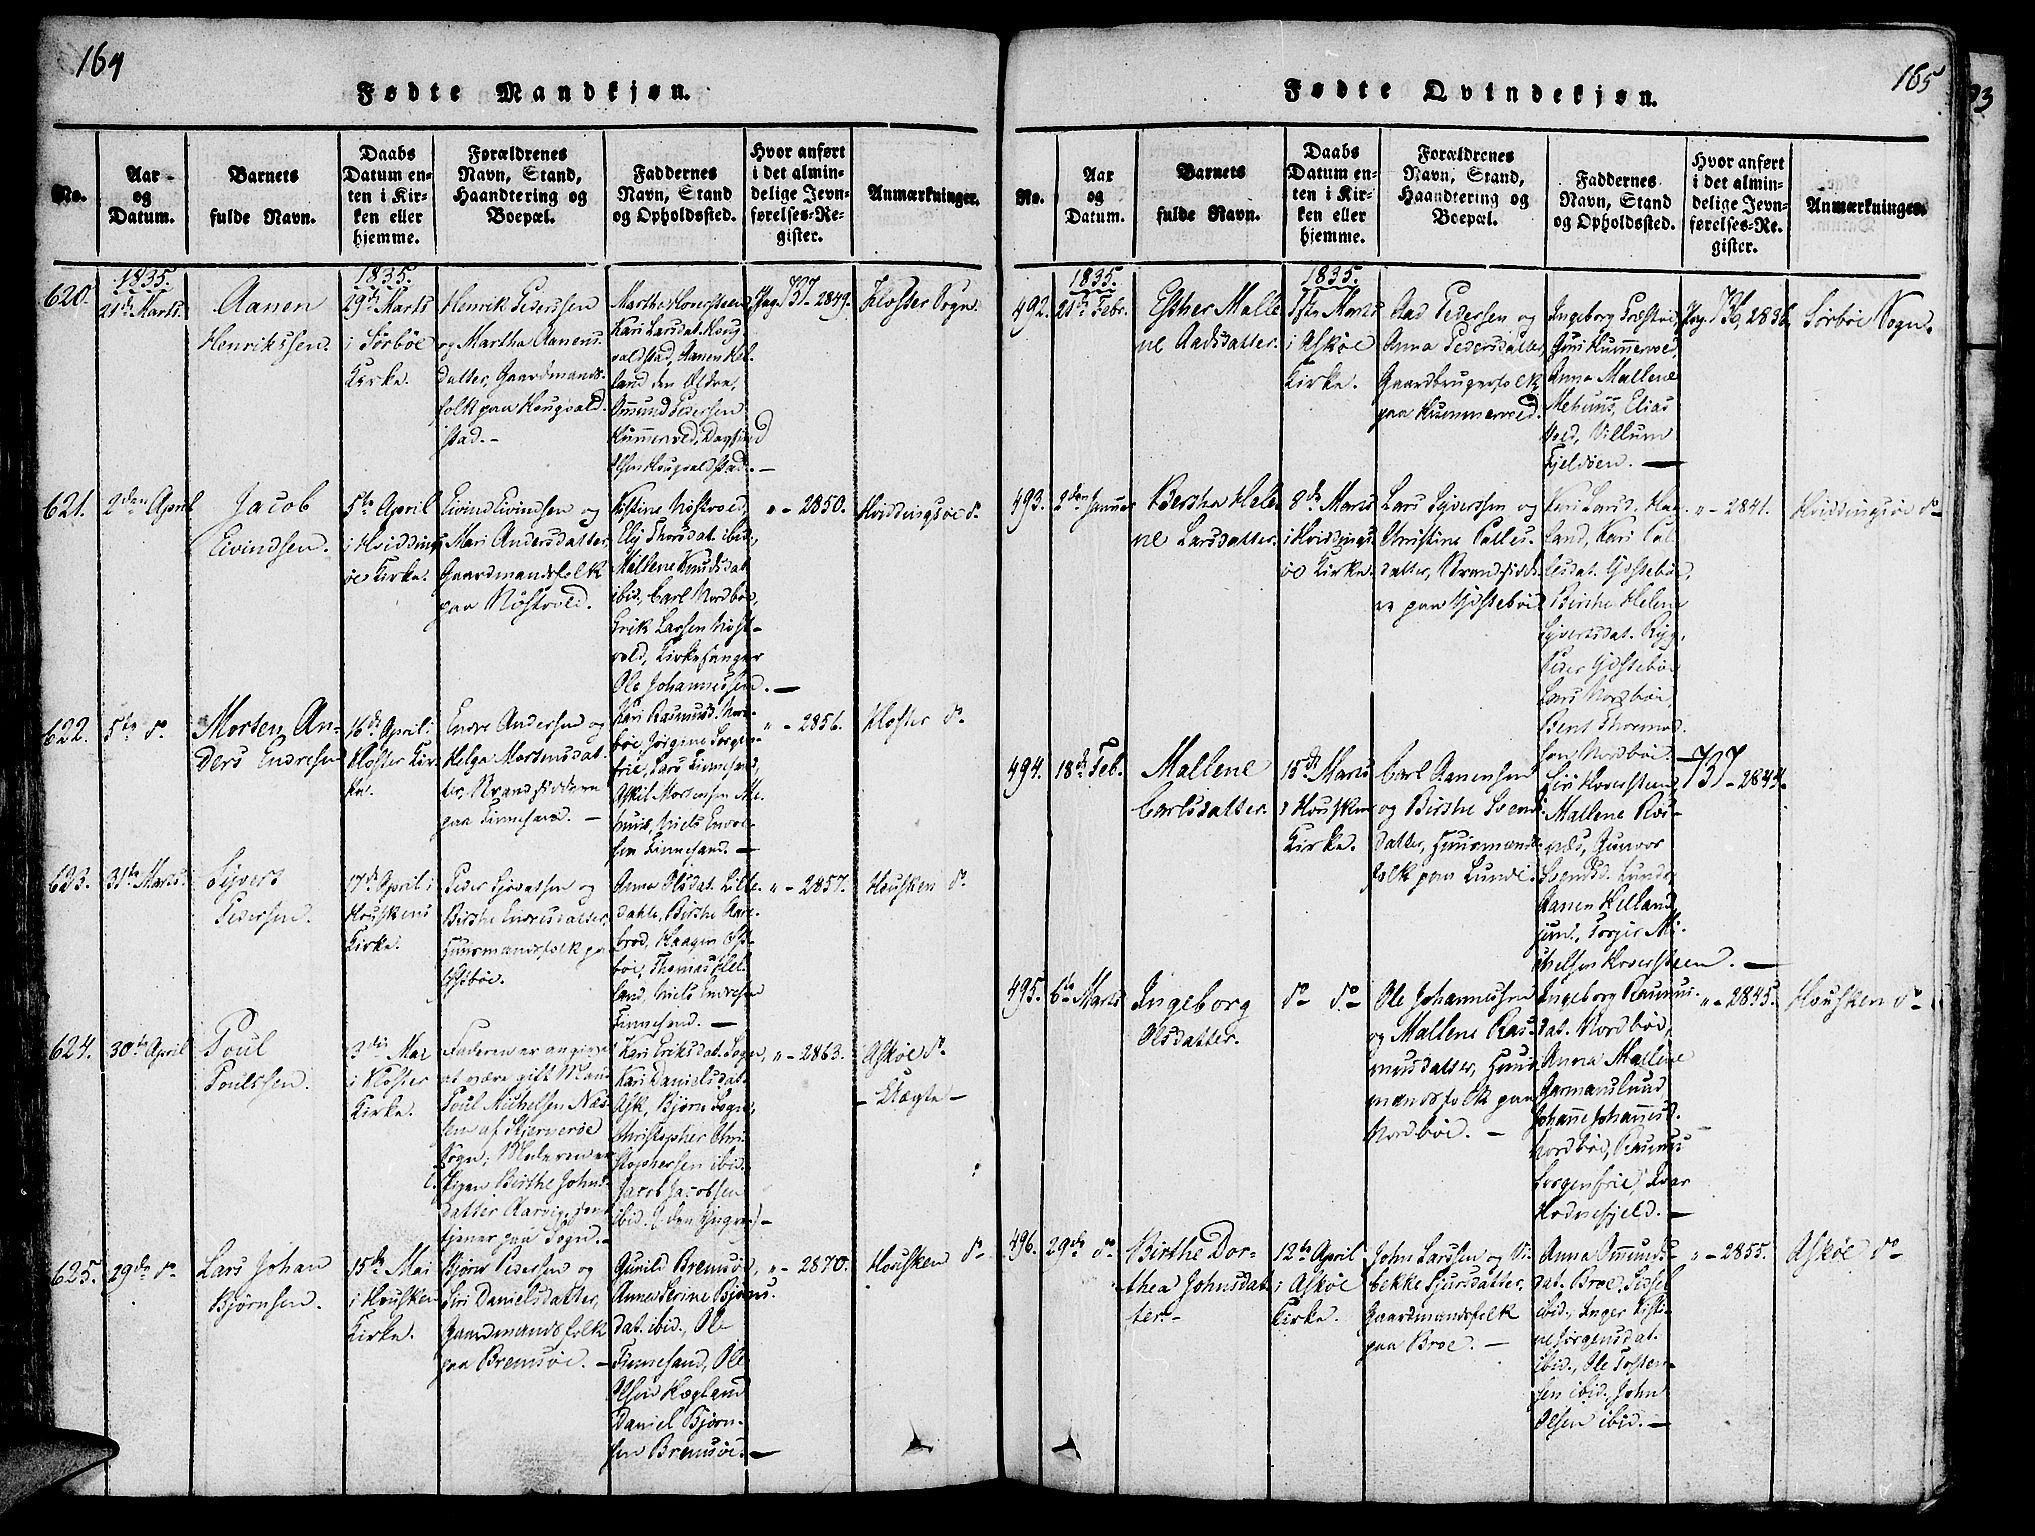 164
Fødte Mandkjøn.
No.
Aar
og
Datum.
Barnets
fulde Navn.
Daabs
Datum en-
ten i Kir-
ken eller
hjemme.
Forældrenes
Navn, Stand,
Haandtering og
Boepæl.
Faddernes
Navn, Stand
og Opholdssted.
Hvor anført
i det almin-
delige Jevn-
førelses-Re-
gister.
Anmærkninger.
620.
1835.
21de Marts.
Aanen
Henrikssen.
1835.
29de Marts
i Sørbøe
Kirke.
Henrik Pederssen
og Martha Aanens-
datter, Gaardmands-
folk paa Hougvald-
stad.-
Marthe Hovesteen
Kari Larsdat. Houg-
valdstad, Aanen Hel-
land den Eldre,
Omund Pedersen
Kummervold, Dagfind
Hougvaldstad. —
Pag. 737. 2849.
Kloster Sogn.
621.
2den April
Jacob
Eivindsen.
5te April
i Hvidding-
øe Kirke.
Eivind Eivindsen og
Mari Andersdatter,
Gaardmandsfolk
paa Nøstvold.
Kistine Nøstvold,
Eli Thorsdat. ibid.,
Mallene Knudsdat.
ibid., Carl Nordbøe,
Erik Larsen Nøst-
vold, Kirkesanger
Ole Johannessen. —
" - 2850.
Hviddingsøe do
622.
5te do
Morten An-
ders Endresen
16de April i
Kloster Kir-
ke.
Endre Andersen og
Helga Mortensdat-
ter, Strandsiddere
paa Finnesand. —
Kari Rasmusd. Nord-
bøe, Jørgine Sorgen-
frie, Lars Finnesand,
Askil Mortensen Me-
huus, Niels Envol-
sen Finnesand. —
" - 2856.
Kloster do
623.
31te Marts.
Sjvert
Pedersen.
17de April i
Houskens
Kirke.
Peder Sjvertsen og
Birthe Endresdatter,
Huusmandsfolk paa
Anna Olsdat. Lille-
dahle, Birthe Aare-
brod, Haagen Ask-
bøe, Thomas Hel-
land, Niels Endresen
Finnesand. —
" - 2857.
Housken do
624.
30te April
Poul
Poulssen.
3die Mai
i Kloster
Kirke.
Faderen er angivet
at være gift Mand
Poul Michelsen Næs-
sen af Skjerverøe
Sogn; Moderen er
Pigen Birthe Johns-
datter Aarvig, som
tjener paa Sogn.-
Kari Eriksdat. Sogn,
Kari Danielsdat.
Ask, Bjørn Sogn,
Christopher Chri-
stophersen ibid.
Jacob Jacobsen
ibid. (den Yngre) -
" - 2863.
Askøe do
- Uægte -
625.
29de do
Lars Johan
Bjørnsen.
15de Mai
i Housken
Kirke.
Bjørn Pedersen og
Siri Danielsdatter,
Gaardmandsfolk
paa Bremsøe. -
Gunild Bremsøe,
Anna Serine Bjørns-
dat. ibid., Ole
Finnesand, Ole
Olsen Hægland
Daniel Bjørn-
sen Bremsøe. —
" - 2870.
Housken do
165
Fødte Qvindekjøn.
No.
Aar
og
Datum.
Barnets
fulde Navn.
Daabs
Datum en-
ten i Kir-
ken eller
hjemme.
Forældrenes
Navn, Stand,
Haandtering og
Boepæl.
Faddernes
Navn, Stand
og Opholdssted.
Hvor anført
i det almin-
delige Jevn-
førelses-Re-
gister.
Anmærkninger.
492.
1835.
21de Febr.
Esther Malle-
ne Aadsdatter.
1835.
1ste Marts
i Askøe
Kirke.
Aad Pedersen og
Anna Pedersdatter,
Gaardbrugerfolk
paa Kummervold.
Ingeborg
Kummervold,
Anna Mallene
Mehuus, Elias
Vold, Villum
Fjeldøen. —
Pag. 736 2836.
Sørbøe Sogn.
493.
2den Januar
Bertha Hele-
ne Larsdatter.
8de Marts
i Hviddings-
øe Kirke.
Lars Sjverssen og
Christine Palles-
datter, Strandsidde-
re paa Gjøstebøe
Kari Larsd. Hau-
land, Kari Pal-
lesdat. Gjøstebøe,
Birthe Helene
Sjvertsdat. Ryg,
Peder Gjøstebøe
Lars Nordbøe,
Bent Thormod-
sen Nordbøe.
" - 2841.
Hviddingsøe do-
494.
18de Feb.
Mallene
Carlsdatter.
15de Marts
i Housken
Kirke.
Carl Aanensen
og Birthe Svends-
datter, Huusmands-
folk paa Lunde.
Siri Hovesteen,
Mallene Røs-
næs, Gunvor
Svendsd. Lunde,
Aanen Helland
jun., Torger Mi-
chelsen Hovesteen. —
737 - 2844.
495.
6te Marts
Ingeborg
Olsdatter.
do do-
Ole Johannessen
og Mallene Ras-
musdatter, Huus-
mandsfolk paa
Nordbøe. -
Ingeborg Rasmus-
dat. Nordbøe,
Anna Mallene
Aarmanslund,
Johanne Johannesd.
Nordbøe, Rasmus
Sorgenfrie, Ivar
Hodnefjeld. —
" - 2845.
Housken do-
496.
29de do
Birthe Dor-
thea Johnsdat-
ter.-
12te April
i Askøe
Kirke.
John Larssen og Vi-
bekke Sjursdatter,
Gaardmandsfolk
paa Broe. -
Anna Omunds-
dat. Broe, Sidsel
ibid., Inger Kisti-
ne Jørgensdat.
ibid., Ole Tosten-
sen ibid., John
Olsen ibid. —
" - 2855.
Askøe do
93